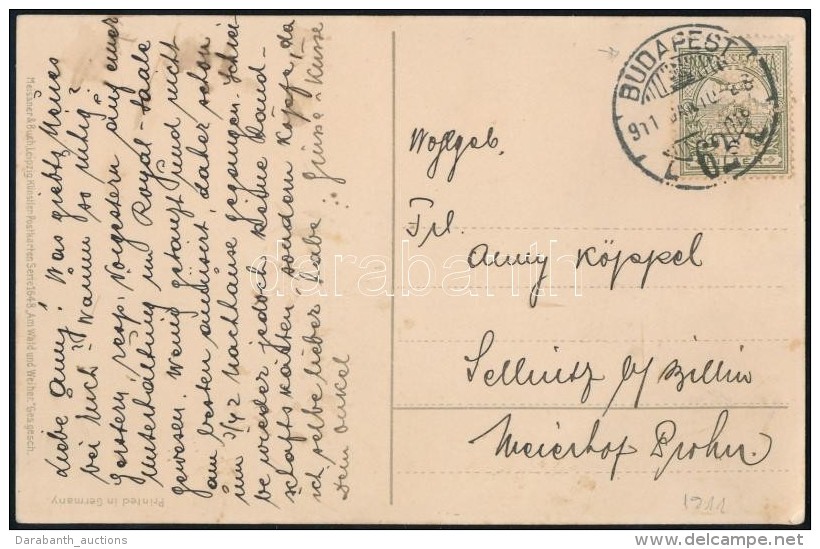 Liebe Anny! Was giebts Neues
bei Euch? Warum so ruhig?
Gestern, resp. Vorgestern auf einer
Unterhaltung im Royal-Saale
gewesen. Wenig getanzt und nicht
am besten amüsiert, daher schon
um 3/4 2 nachhause gegangen. Schrei-
be wieder jedoch keine Land-
schaftskarten, sondern Köpfe, da
ich selbe lieber habe. Grüsse & Küsse
Dein Onkel
Meissner & Buch Leipzig Künstler-Postkarten Serie 1648 "Am Wald und Weiher" Ges. gesch.
Printed in Germany.
BUDAPEST
911 JAN
Wohlgeb.
Frl.
Anny Köppel
Sellnitz b/ Billin
Meierhof Prohn.
1911
darabanth
Darabanth_auctions
delcampe.net